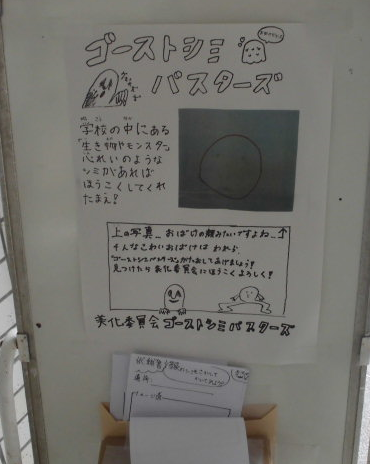 ゴーストシミ
バスターズ
学校の中にある
生き物やモンスター、
恐れいのような
シミがあれば
ほうこくしてくれ
たまえ!
上の写真_おばけの顔みたいですよね_↑
そんなこわいおばけは われら
"ゴーストシミバスターズ"がたおしてあげましょう!
見つけたら美化委員会にほうこくよろしく!
美化委員会ゴーストシミバスターズ
場所